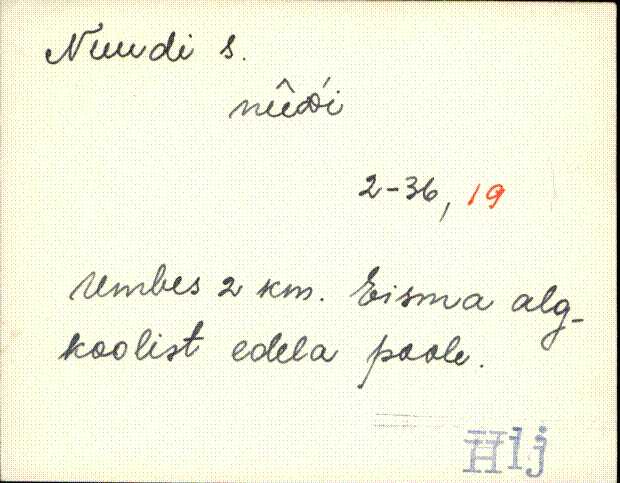 Nuudi s.
2-36, 19
Umbes 2 km. Eisma alg-
koolist edela poole.
Hlj